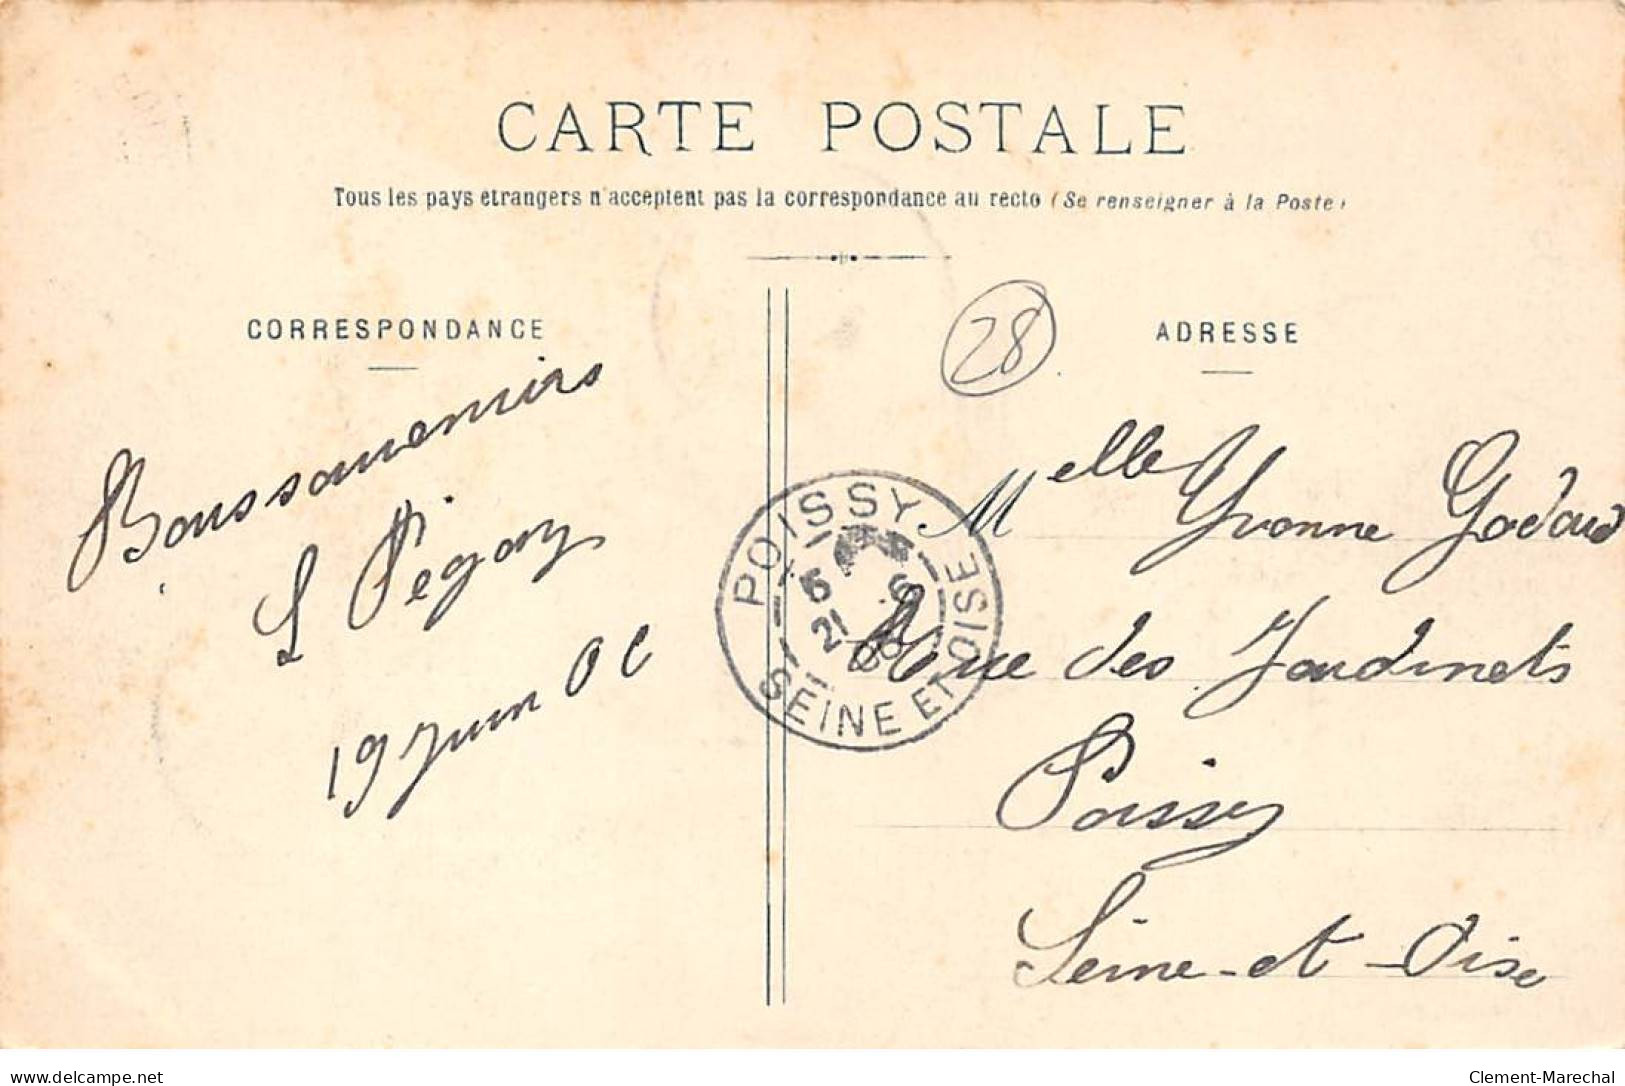 CARTE POSTALE
Tous les pays étrangers n'acceptent pas la correspondance au recto (Se renseigner à la Poste)
CORRESPONDANCE
Bons souvenirs
L Pégoy
19 Juin 06
28
ADRESSE
Melle Yvonne Godard
Rue des Jardinets
Poissy
Seine-et-Oise
POISSY
21
SEINE ET OISE
www.delcampe.net
Clement-Marechal